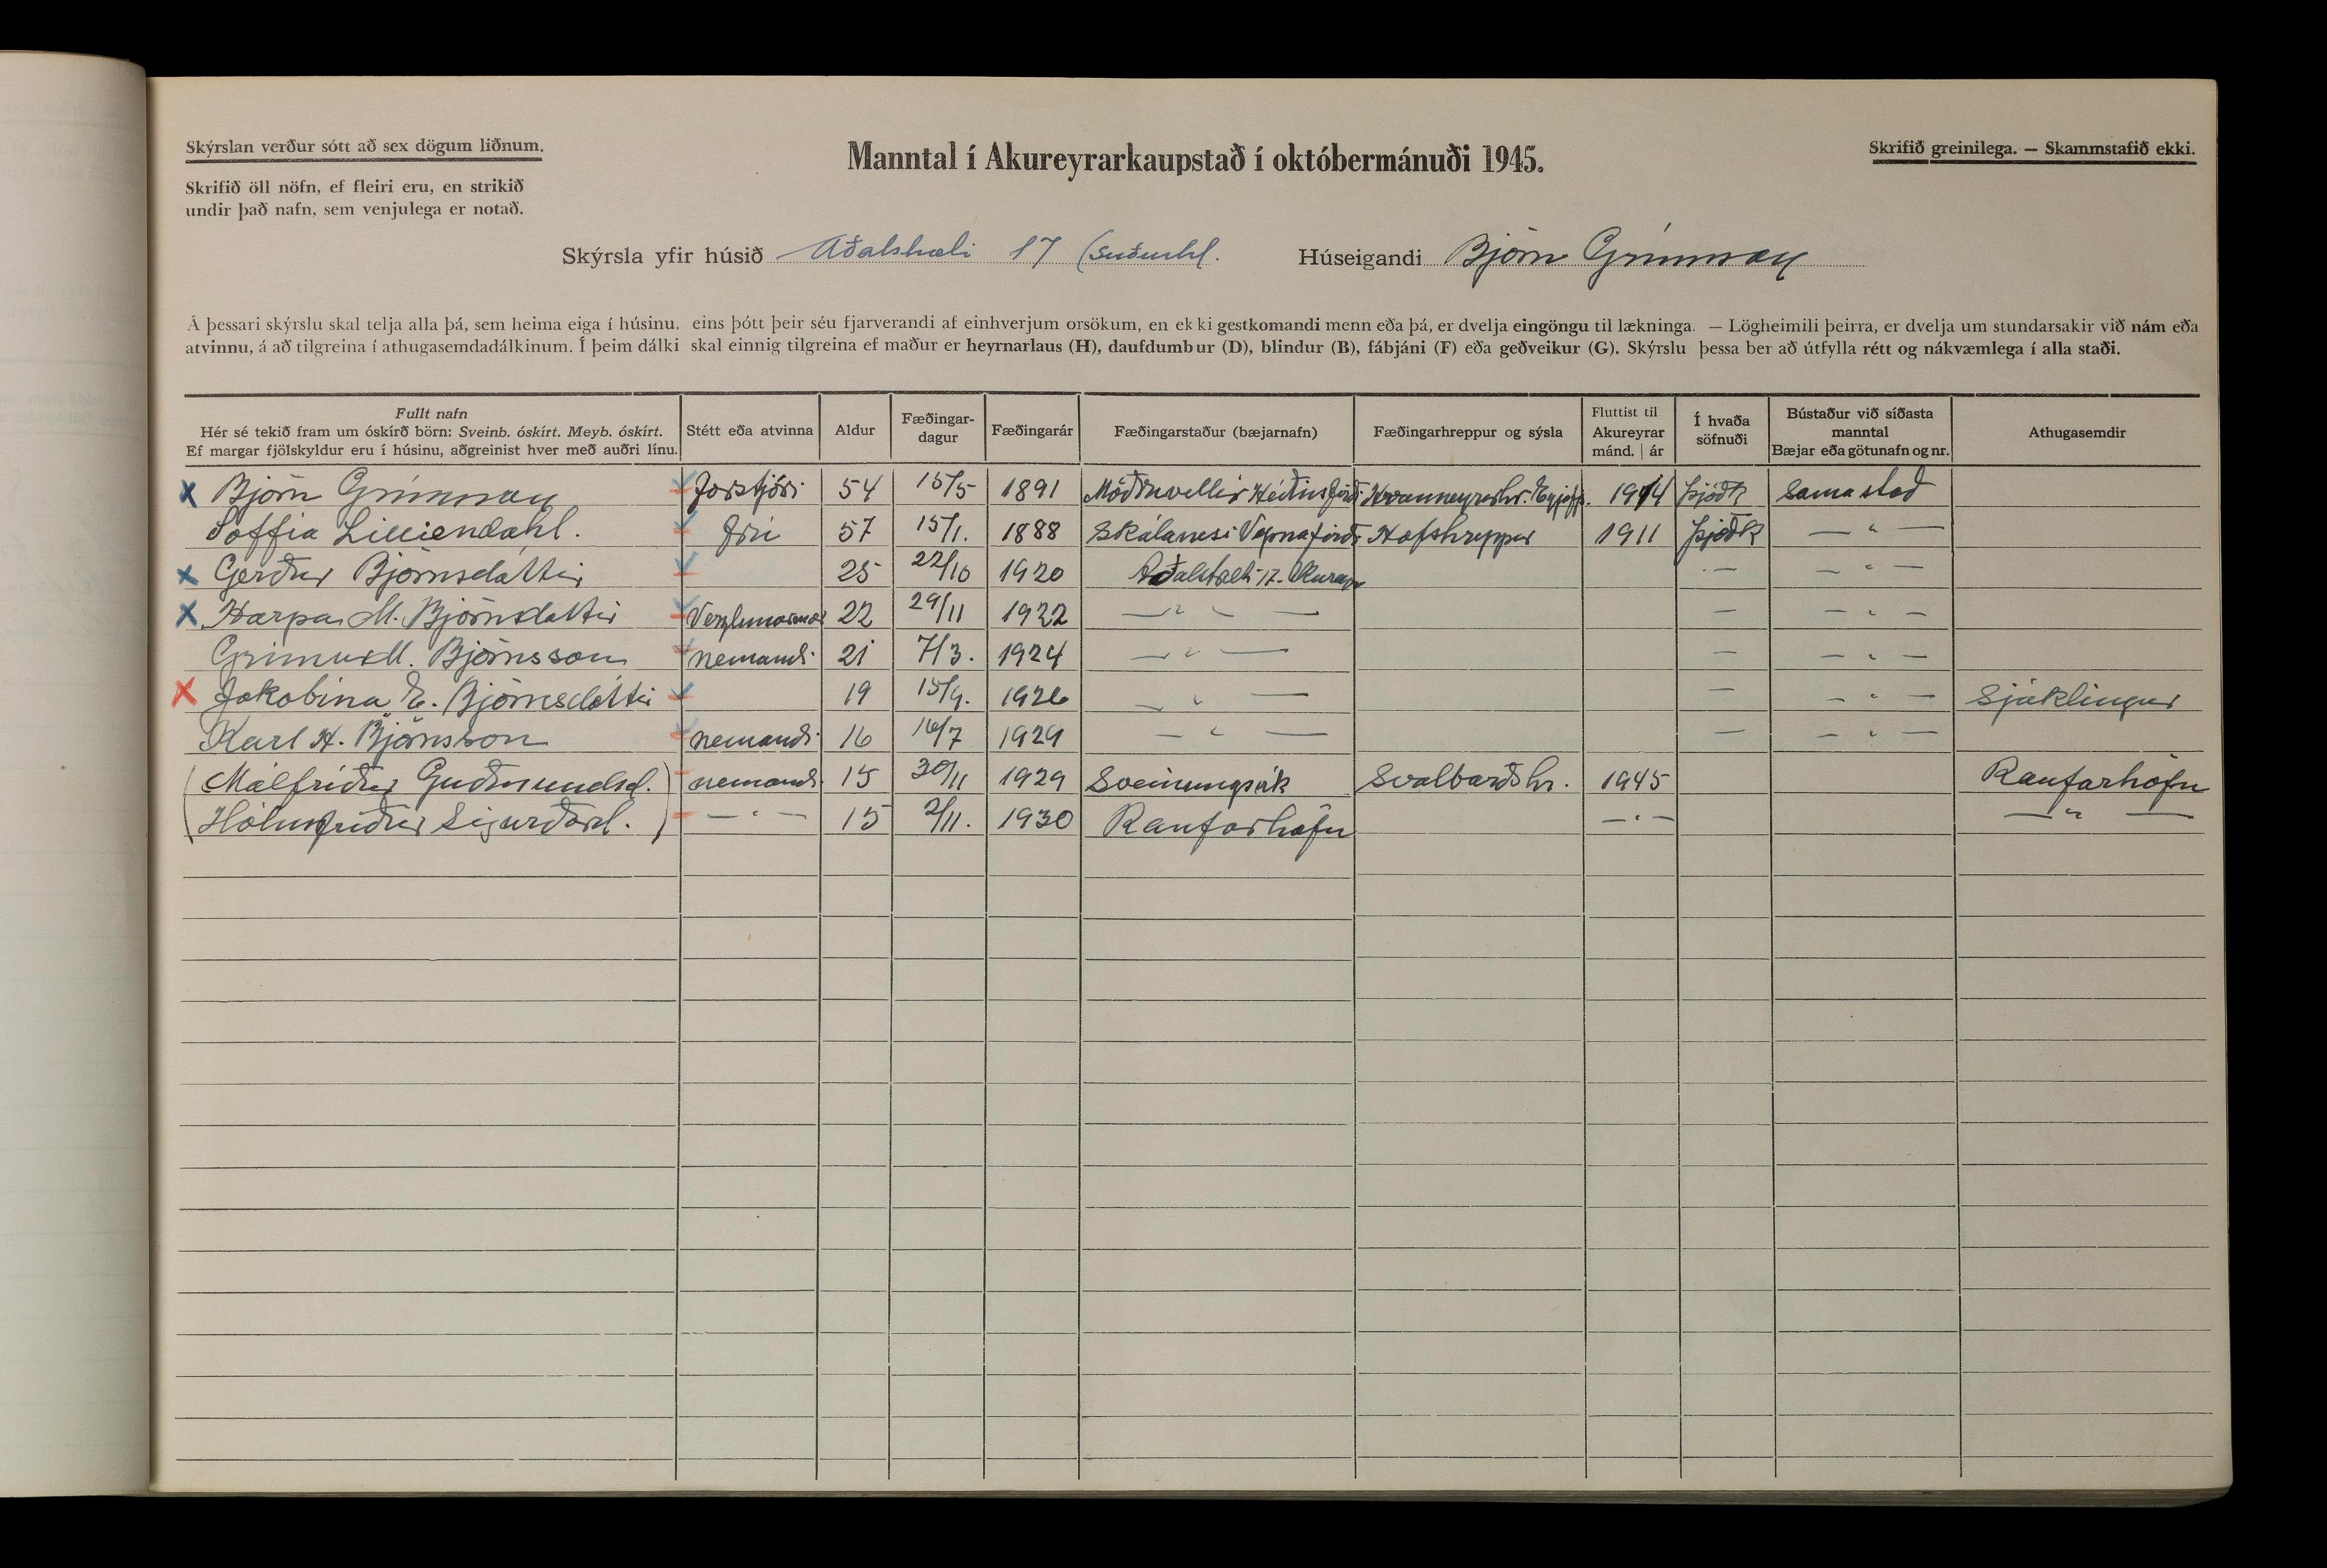 Skýrslan verður sótt að sex dögum liðnum.
Manntal í Akureyrarkaupstað í októbermánuði 1945.
Skrifið greinilega. — Skammstafið ekki.
Skrifið öll nöfn, ef fleiri eru, en strikið
undir það nafn, sem venjulega er notað.
Skýrsla yfir húsið Aðalstræti 17 (Suðurhl. Húseigandi Björn Grímsson
Á þessari skýrslu skal telja alla þá, sem heima eiga í húsinu, eins þótt þeir séu fjarverandi af einhverjum orsökum, en ekki gestkomandi menn eða þá, er dvelja eingöngu til lækninga. — Lögheimili þeirra, er dvelja um stundarsakir við nám eða
atvinnu, á að tilgreina í athugasemdadálkinum. Í þeim dálki skal einnig tilgreina ef maður er heyrnarlaus (H), daufdumbur (D), blindur (B), fábjáni (F) eða geðveikur (G). Skýrslu þessa ber að útfylla rétt og nákvæmlega í alla staði.
Fullt nafn
Hér sé tekið fram um óskírð börn: Sveinb. óskírt. Meyb. óskírt.
Ef margar fjölskyldur eru í húsinu, aðgreinist hver með auðri línu.
Stétt eða atvinna
Aldur
Fæðingar-
dagur
Fæðingarár
Fæðingarstaður (bæjarnafn)
Fæðingarhreppur og sýsla
Fluttist til
Akureyrar
mánd. | ár
Í hvaða
söfnuði
Bústaður við síðasta
manntal
Bæjar eða götunafn og nr.
Athugasemdir
Björn Grímsson forstjóri 54 15/5 1891 Möðruvellir Héðinsfirði Hvanneyrarhr. Eyjafj. 1914 Þjóðk Sama stað
Soffia Lilliendahl. frú 57 15/1. 1888 Skálanesi Vopnafirði Hofshreppur 1911 Þjóðk — " —
Gerður Björnsdóttir 25 22/10 1920 Aðalstræti 17. — — " —
Harpa M. Björnsdóttir 22 29/11 1922 — " — — — " —
Grímur M. Björnsson nemandi 21 7/3. 1924 — " — — — " —
Jakobína E. Björnsdóttir 19 15/9. 1926 — " — — — " — Sjúklingur
Karl H. Björnsson nemandi 16 16/7 1929 — " — — — " —
(Málfríður Guðmundsd. nemandi 15 30/11 1929 Svalbarðshr. 1945 Raufarhöfn
Hólmfríður Sigurðard.) — " — 15 2/11. 1930 Raufarhöfn — " — — " —